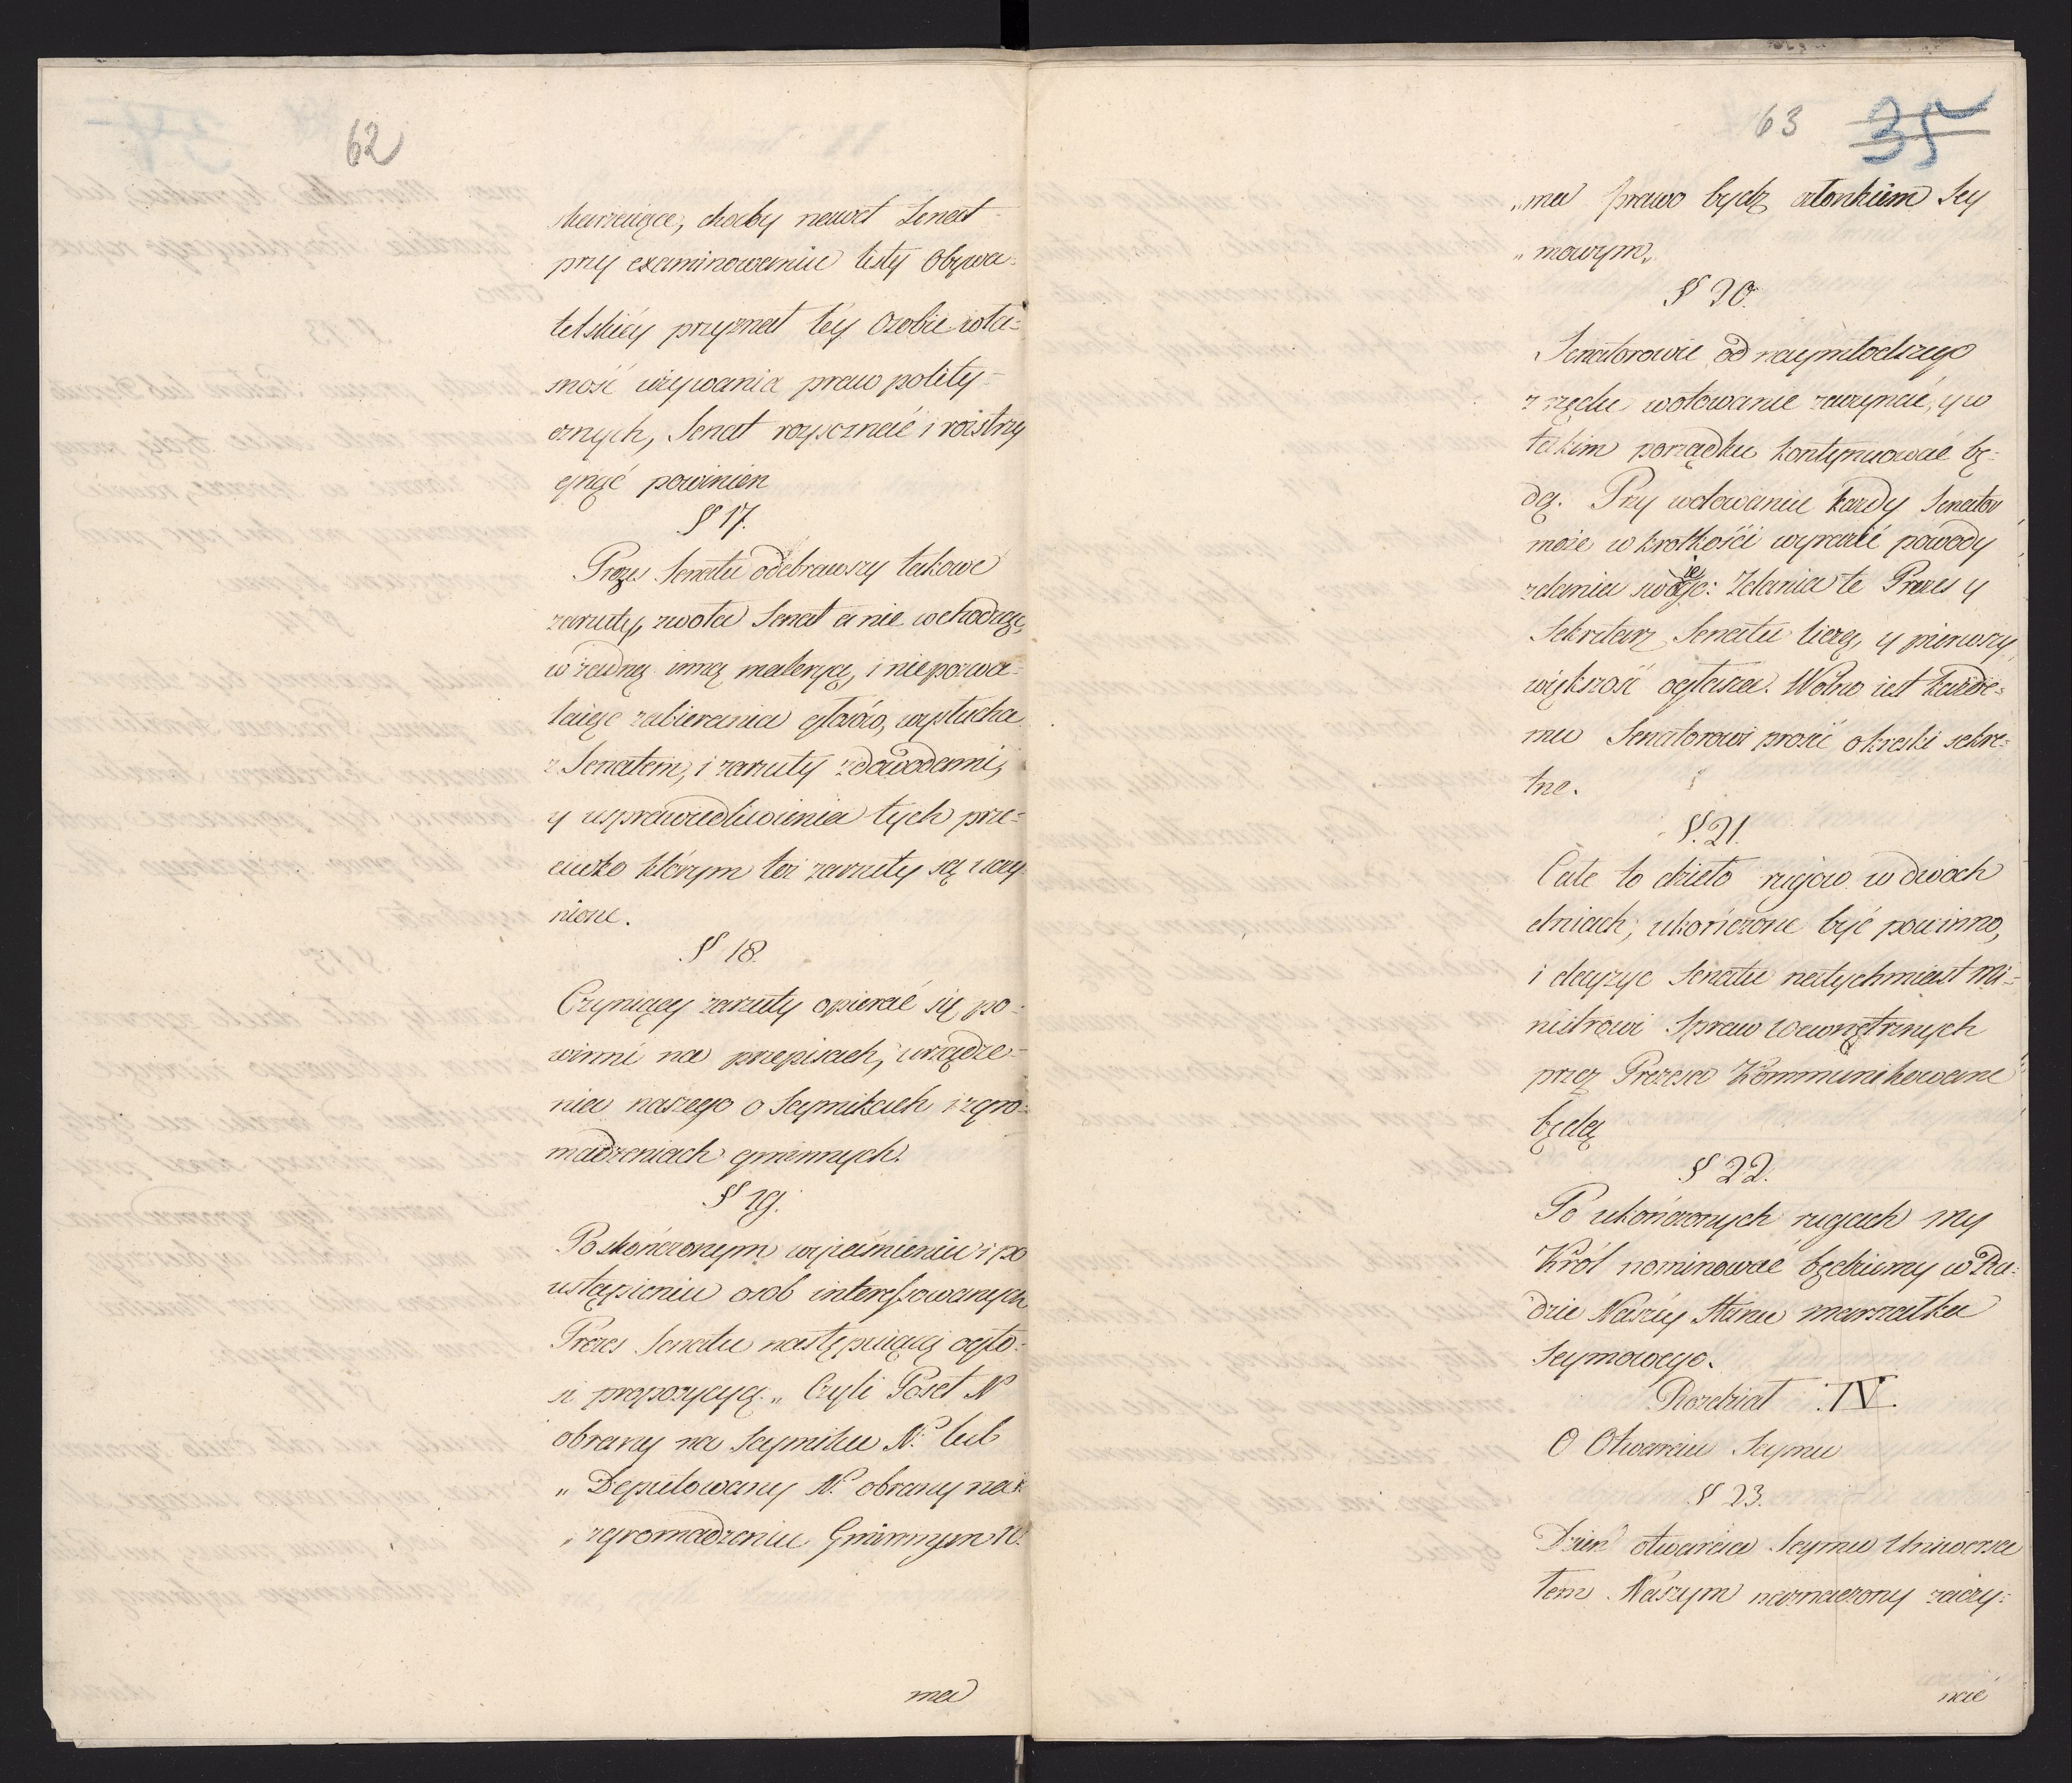 62
skurzaiące, choćby nawet Senat
przy examinowaniu listy Obywa=
telskiéy przyznał téy Osobie wła=
sność używania praw polity=
cznych, Senat rozpoznać i rozstrzy
gnąć powinien
§ 17.
Prezes Senatu odebrawszy takowe
zarzuty, zwoła Senat a nie wchodząc,
w żadną inną materyą, i niepozwa=
laiąc zabierania głosów, wysłucha
z Senatem, i zarzuty z dowodami,
y usprawiedliwienia tych prze=
ciwko którym też zarzuty są uczy
nione.
§ 18.
Czyniący zarzuty opierać się po=
winni na przepisach, urządze=
nia naszego o Seymikach i zgro=
madzeniach gminnych.
§ 19.
Po skończonym wyjaśnieniu i po
ustąpieniu osob interessowanych
Prezes Senatu następuiącą ogło=
si propozycyą. „ Czyli Poseł N
obrany na Seymiku N. lub
„ Deputowany N. obrany na
„ zgromadzeniu Gminnym N.
ma
63 35
„ma prawo bydz członkiem Sey
„mowym„
§ 20.
Senatorowie od naymłodszego
z rzędu wotowanie zaczynać, y w
takim porządku kontynuować bę=
dą. Przy wotowaniu każdy Senator
może w krotkości wyrazić powody
zdania swoje: Zdania te Prezes y
Sekretarz Senatu liczą, y pierwszy
większość ogłasza. Wolno iest każde=
mu Senatorowi prosić o kreski sekre=
tne.
§. 21.
Całe to dzieło rugów w dwóch
dniach, ukończone być powinno,
i decyzye Senatu natychmiast Mi=
nistrowi Spraw Wewnętrznych
przez Prezesa Kommunikowane
będą
§ 22.
Po ukończonych rugach my
Król nominować będziemy w Ra=
dzie Naszéy Stanu marszałka
Seymowego.
Rozdział IV.
O Otwarciu Seymu
§ 23.
Dzien otwarcia Seymu Uniwersa
łem Naszym naznaczony zaczy=
nać